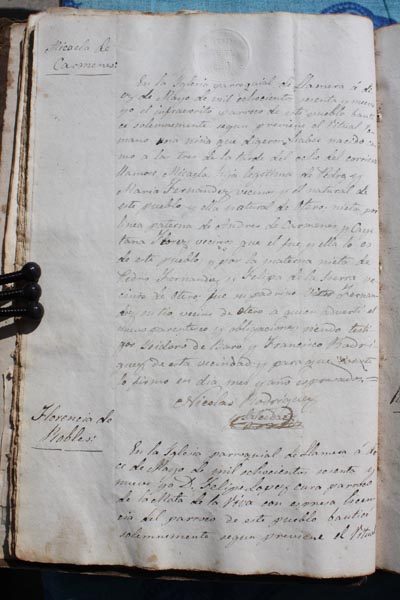 Micaela de
Carmenes:
En la Iglesia parroquial de Llamera á do-
ce de Mayo de mil ochocientos sesenta y nueve
yo el infrascrito parroco de este pueblo bauti-
ce solemnemente segun previene el Ritual Ro-
mano una niña que digeron habia nacido co-
mo a las tres de la tarde del ocho del corriente
llamose Micaela hija legitima de Pedro y
Maria Fernandez vecinos y el natural de
este pueblo y ella natural de Otero nieta por
linea paterna de Andres de Carmenes y Caye-
tana Florez vecinos que el fue y ella lo es
de este pueblo y por la materna nieta de
Pedro Fernandez y Felipa de la Sierra ve-
cinos de Otero fue su padrino Fernan-
dez su tio vecino de Otero a quien adverti el
parentesco y obligaciones siendo testi-
gos Isidoro de Caro y Francisco Rodri-
guez de esta vecindad y para que conste
lo firmo en dia, mes y año expresados=
Nicolas Rodriguez
Florencia de
Robles:
En la Iglesia parroquial de Llamera á do-
ce de Mayo de mil ochocientos sesenta y
nueve yo D. Felipe Lopez cura parroco
de la Mata de la Riva con expresa licen-
cia del parroco de este pueblo bautice
solemnemente segun previene el Ritual